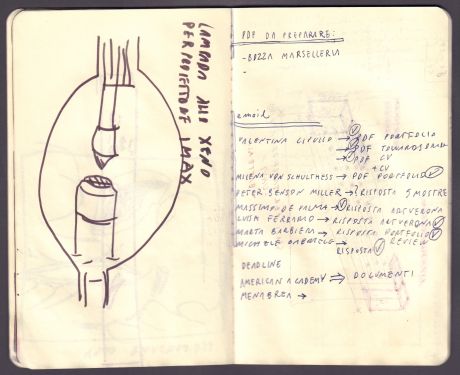 LAMPADA ALLO XENO
PER PROIETTORE IMAX
PDF DA PREPARARE:
- BOZZA MARSELLERIA
-
email
VALENTINA CIPULLO → PDF PORTFOLIO
→ PDF TOWARDS
→ PDF CV
+ CV
MILENA VON SCHULTHESS → PDF PORTFOLIO
PETER BENSON MILLER → ? RISPOSTA 5 MOSTRE
MASSIMO DE PALMA → RISPOSTA ARTVERONA
LUISA FERRARIO → RISPOSTA ARTVERONA
MARTA BARBIERI → RISPOSTA PORTFOLIO
REVIEW
RISPOSTA
DEADLINE
AMERICAN ACADEMY → DOCUMENTI
MENABREA →